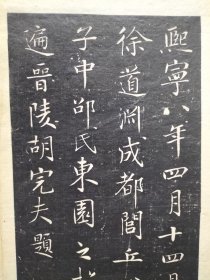 熙寧八年四月十四
徐道淵成都閭丘
子中邵氏東園之
遍晉陵胡完夫題